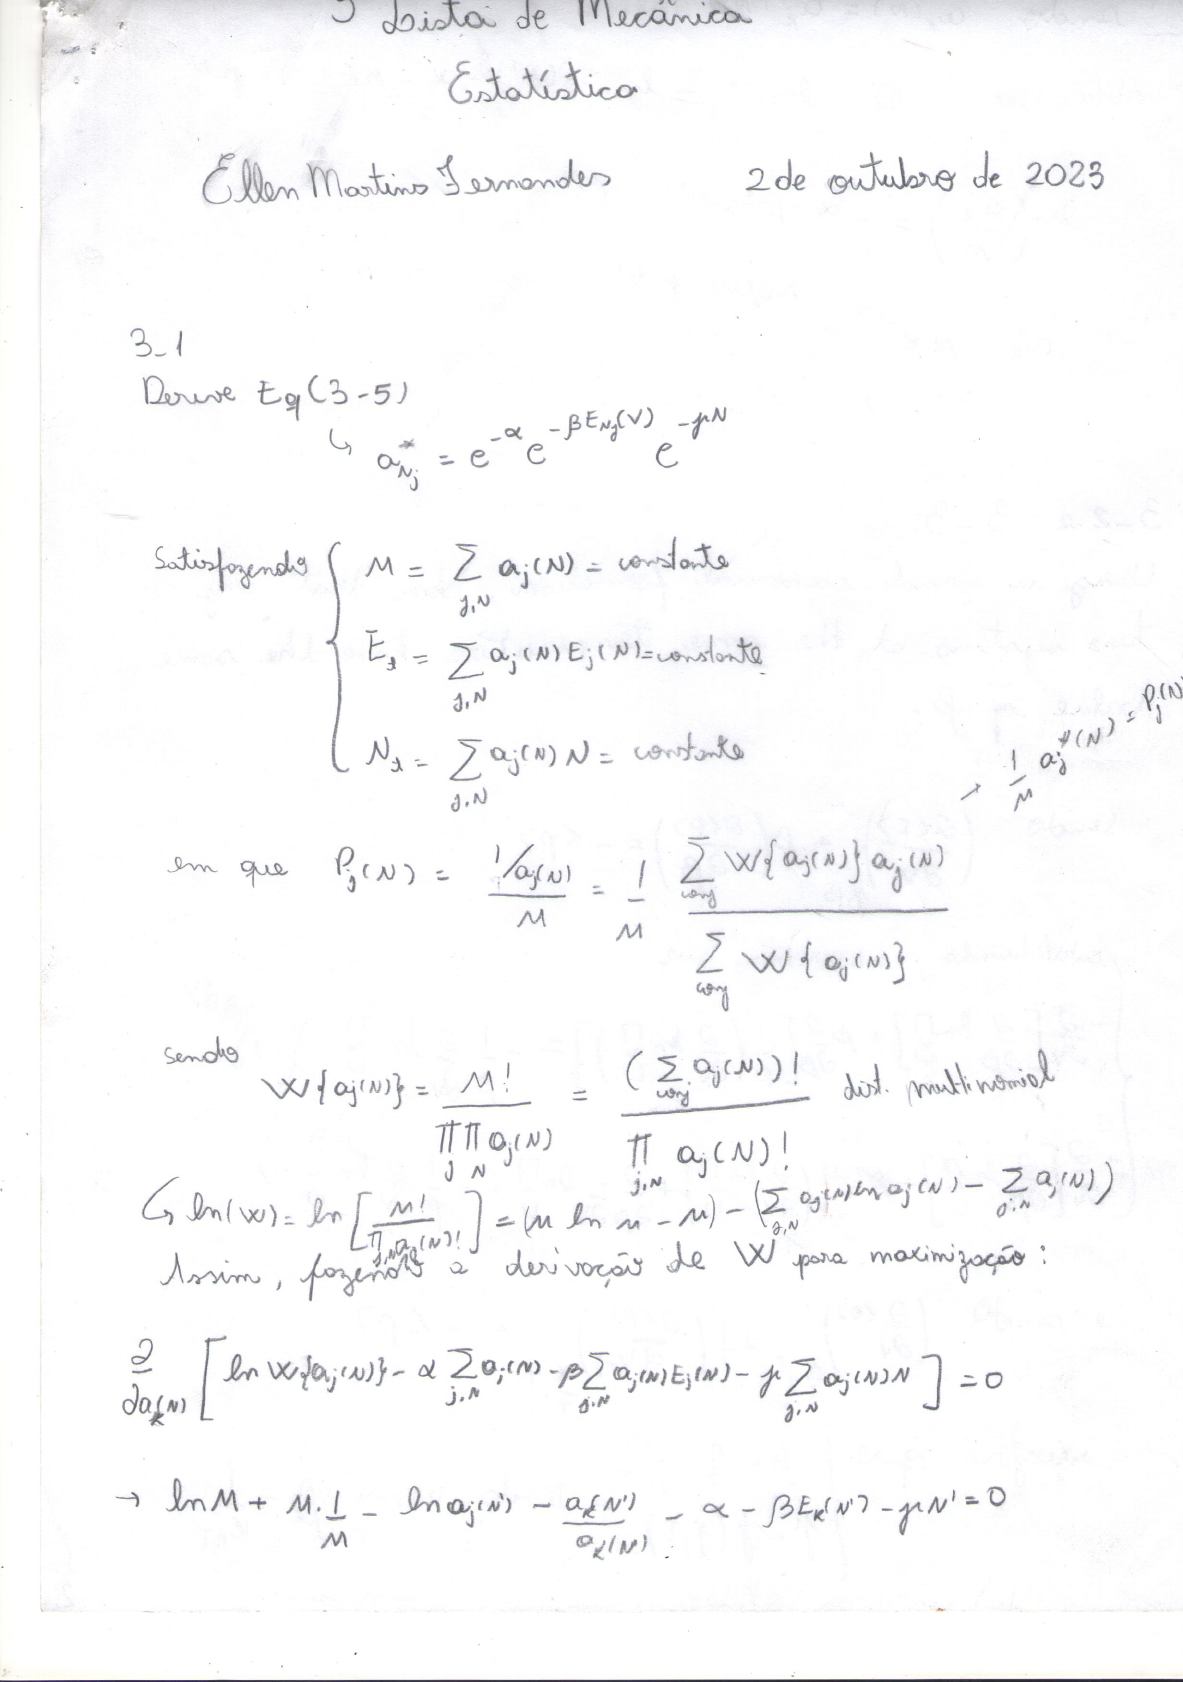 Lista de Mecânica
Estatística
Ellen Martins Fernandes 2 de outubro de 2023
3-1
Derive Eq (3-5)
↳ a*_{Nj} = e^{-α} e^{-βE_{Nj}(V)} e^{-γN}
Satisfazendo { M = Σ_{j,N} a_j(N) = constante
E_t = Σ_{j,N} a_j(N) E_j(N) = constante
N_t = Σ_{j,N} a_j(N) N = constante
→ 1/M a_j*(N) = P_j(N)
em que P_j(N) = (1/a_j(N))/M = 1/M (Σ_{conj} W{a_j(N)} a_j(N))/(Σ_{conj} W{a_j(N)})
sendo
W{a_j(N)} = M!/(Π_j Π_N a_j(N)) = (Σ_{conj} a_j(N))!/(Π_{j,N} a_j(N)!) dist. multinomial
↳ ln(W) = ln [M!/(Π_{j,N} a_j(N)!)] = (M ln M - M) - (Σ_{j,N} a_j(N) ln a_j(N) - Σ_{j,N} a_j(N))
Assim, fazendo a derivação de W para maximização:
∂/∂a_k(N) [ln W{a_j(N)} - α Σ_{j,N} a_j(N) - β Σ_{j,N} a_j(N) E_j(N) - γ Σ_{j,N} a_j(N) N] = 0
→ ln M + M . 1/M - ln a_j(N') - a_k(N')/a_k(N) - α - βE_k(N') - γN' = 0